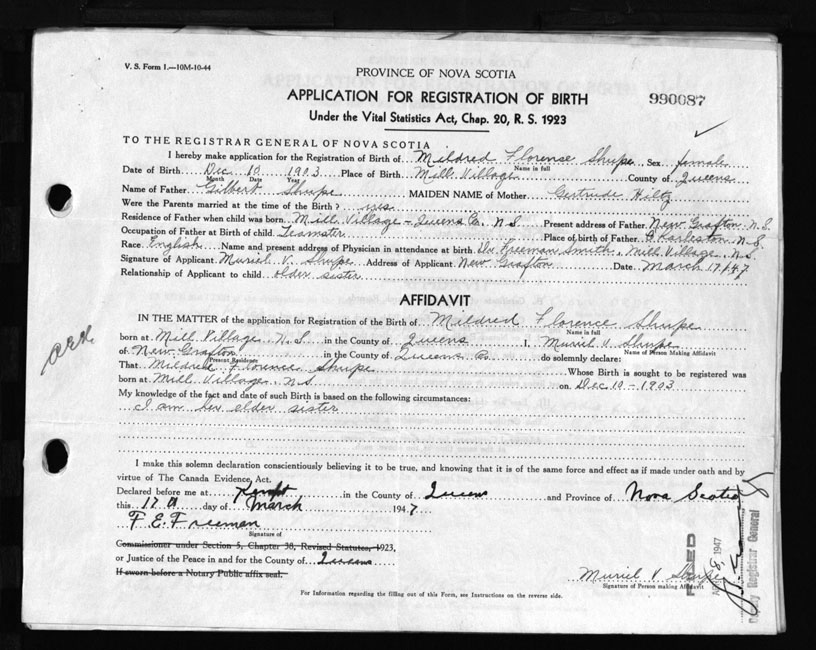 V. S. Form 1.—10M-10-44
PROVINCE OF NOVA SCOTIA
APPLICATION FOR REGISTRATION OF BIRTH
990087
Under the Vital Statistics Act, Chap. 20, R. S. 1923
TO THE REGISTRAR GENERAL OF NOVA SCOTIA
I hereby make application for the Registration of Birth of Mildred Florence Shupe Sex female
Name in full
Date of Birth Dec 10 1903 Place of Birth Mill Village County of Queens
Month Date Year
Name of Father Gilbert Shupe MAIDEN NAME of Mother Gertrude Hiltz
Were the Parents married at the time of the Birth? yes
Residence of Father when child was born Mill Village - Queens Co. N.S. Present address of Father New Grafton N.S.
Occupation of Father at Birth of child Teamster Place of birth of Father Charleston N.S.
Race English Name and present address of Physician in attendance at birth Dr. Freeman Smith, Mill Village, N.S.
Signature of Applicant Muriel V. Shupe Address of Applicant New Grafton Date March 17/47
Relationship of Applicant to child older sister
AFFIDAVIT
IN THE MATTER of the application for Registration of the Birth of Mildred Florence Shupe
Name in full
born at Mill Village N.S. in the County of Queens I, Muriel V. Shupe
Name of Person Making Affidavit
of New Grafton in the County of Queens Co. do solemnly declare:
Present Residence
That Mildred Florence Shupe Whose Birth is sought to be registered was
born at Mill Village N.S. on Dec 10 - 1903
My knowledge of the fact and date of such Birth is based on the following circumstances:
I am her elder sister
I make this solemn declaration conscientiously believing it to be true, and knowing that it is of the same force and effect as if made under oath and by
virtue of The Canada Evidence, Act.
Declared before me at Kempt in the County of Queens and Province of Nova Scotia
this 17 day of March 1947
F. E. Freeman
Signature of
Commissioner under Section 5, Chapter 38, Revised Statutes, 1923,
or Justice of the Peace in and for the County of Queens
If sworn before a Notary Public affix seal.
Muriel V. Shupe
Signature of person making Affidavit
For Information regarding the filling out of this Form, see Instructions on the reverse side.
FILED
8, 1947
Deputy Registrar General